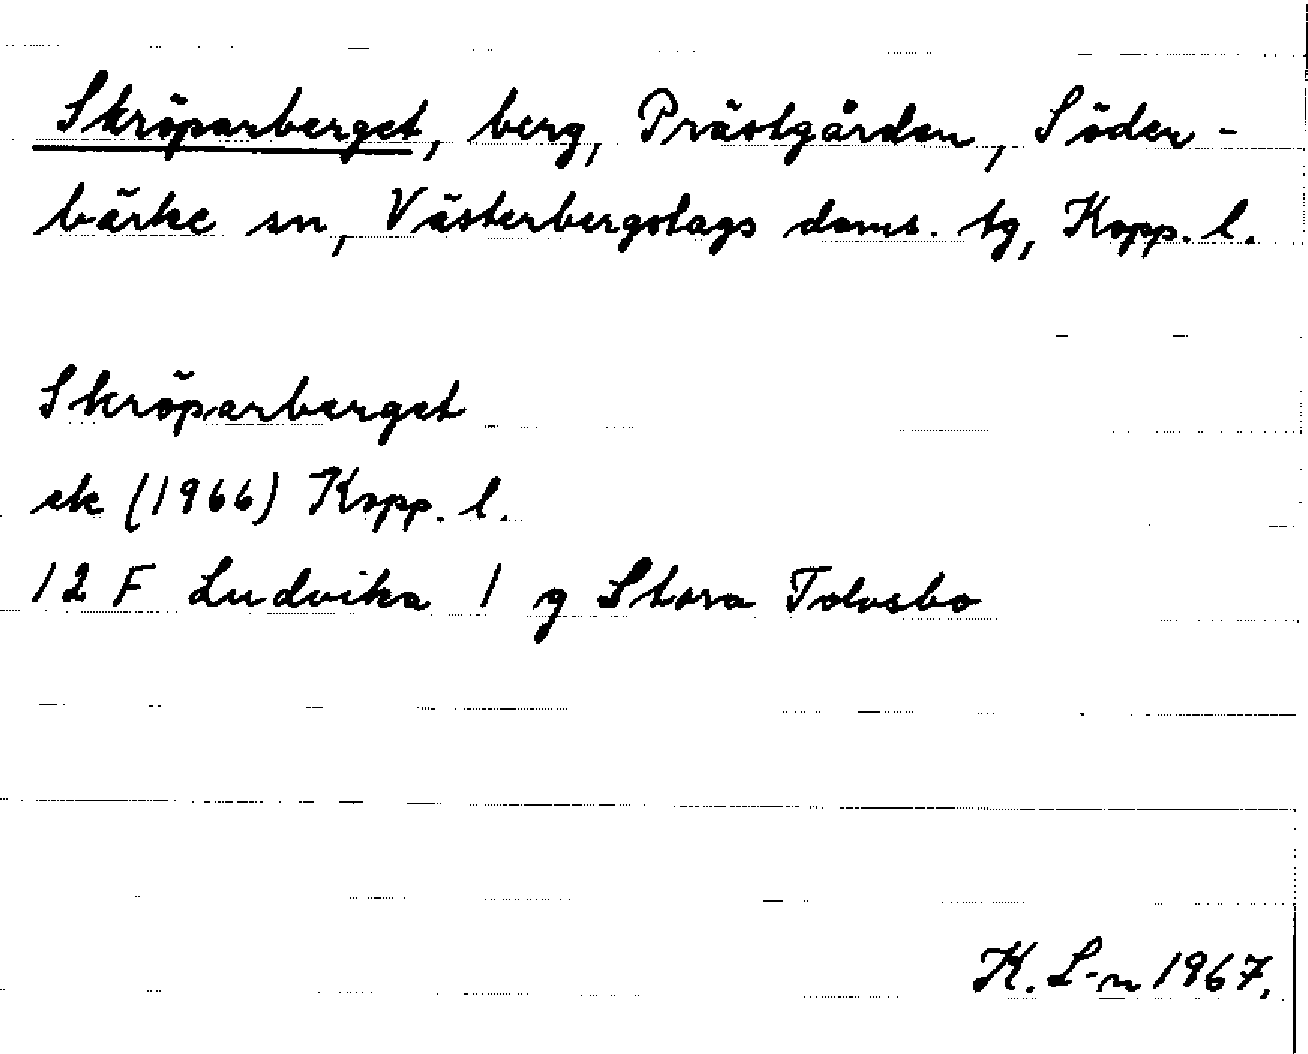 Skröparberget, berg, Prästgården, Söder-
bärke sn, Västerbergslags doms. tg, Kopp. l.
Skröparberget
ek (1966) Kopp. l.
12 F Ludvika 1 g Stora Tolvsbo
K. L-n 1967.